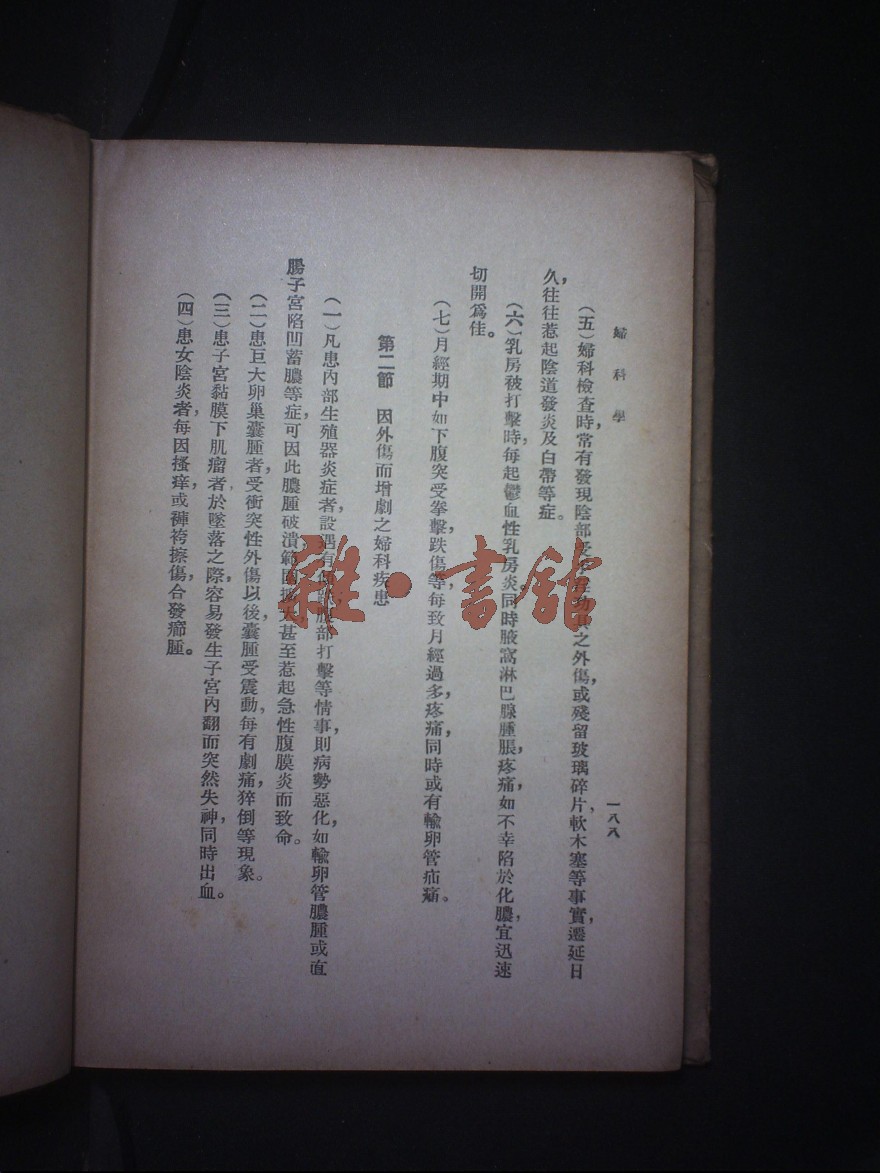 婦科學
一八八
(五)婦科檢查時,常有發現陰部 之外傷,或殘留玻璃碎片,軟木塞等事實,遷延日
久,往往惹起陰道發炎及白帶等症。
(六)乳房被打擊時,每起鬱血性乳房炎。同時腋窩淋巴腺腫脹,疼痛,如不幸陷於化膿,宜迅速
切開爲佳。
(七)月經期中如下腹突受拳擊,跌傷等,每致月經過多,疼痛,同時或有輸卵管
第二節 因外傷而增劇之婦科疾患
(一)凡患內部生殖器炎症者,設遇有 腹部打擊等情事,則病勢惡化,如輸卵管膿腫或直
腸子宮陷凹蓄膿等症,可因此膿腫破潰,範圍擴大,甚至惹起急性腹膜炎而致命。
(二)患巨大卵巢囊腫者,受衝突性外傷以後,囊腫受震動,每有劇痛,猝倒等現象。
(三)患子宮黏膜下肌瘤者,於墜落之際,容易發生子宮內翻而突然失神,同時出血。
(四)患女陰炎者,每因搔痒,或褲袴擦傷,合發癤腫。
雜·書館